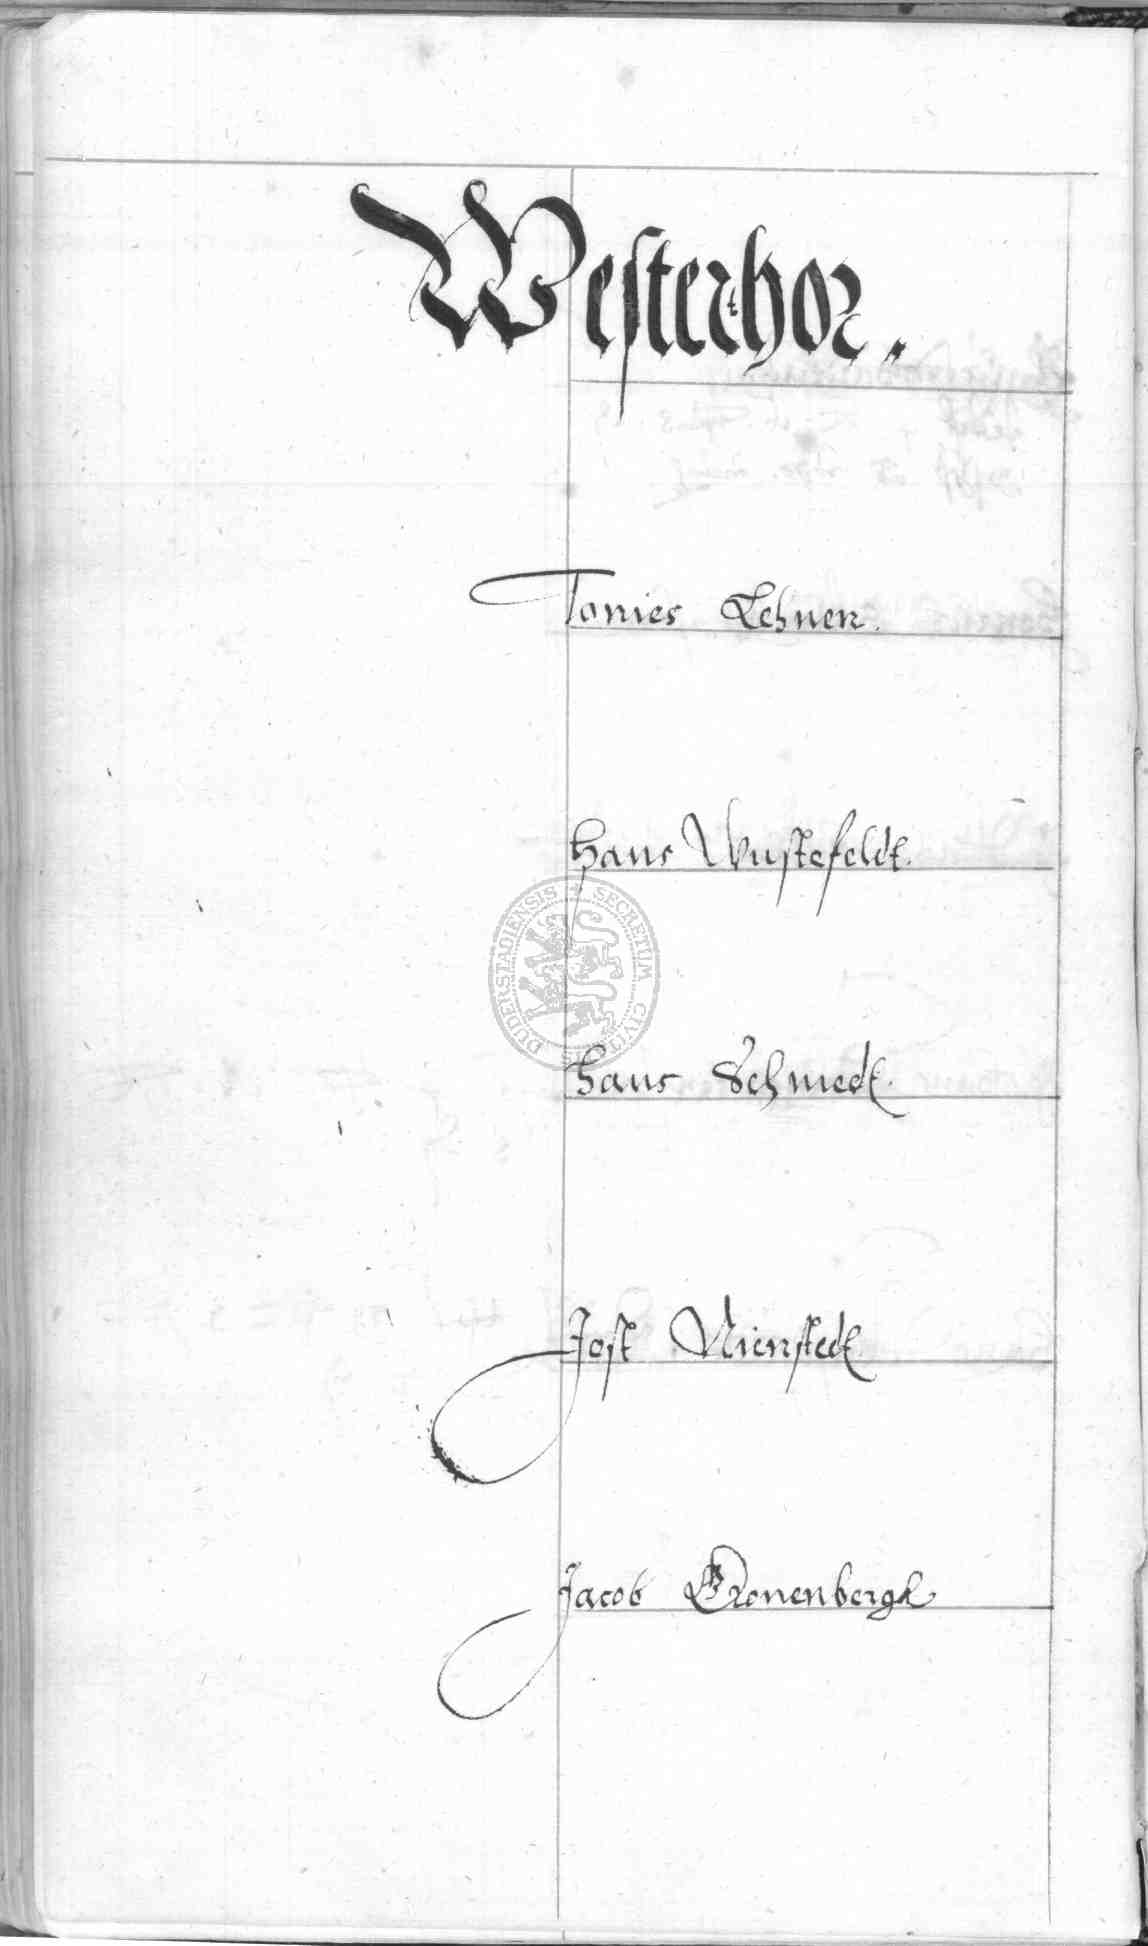 Westerthor.
Tonies Lehnen.
Hans Wustefeldt.
SECRETUM CIVITATIS DUDERSTADIENSIS
Hans Schmedt.
Jost Nienstedt.
Jacob Cronenbergk